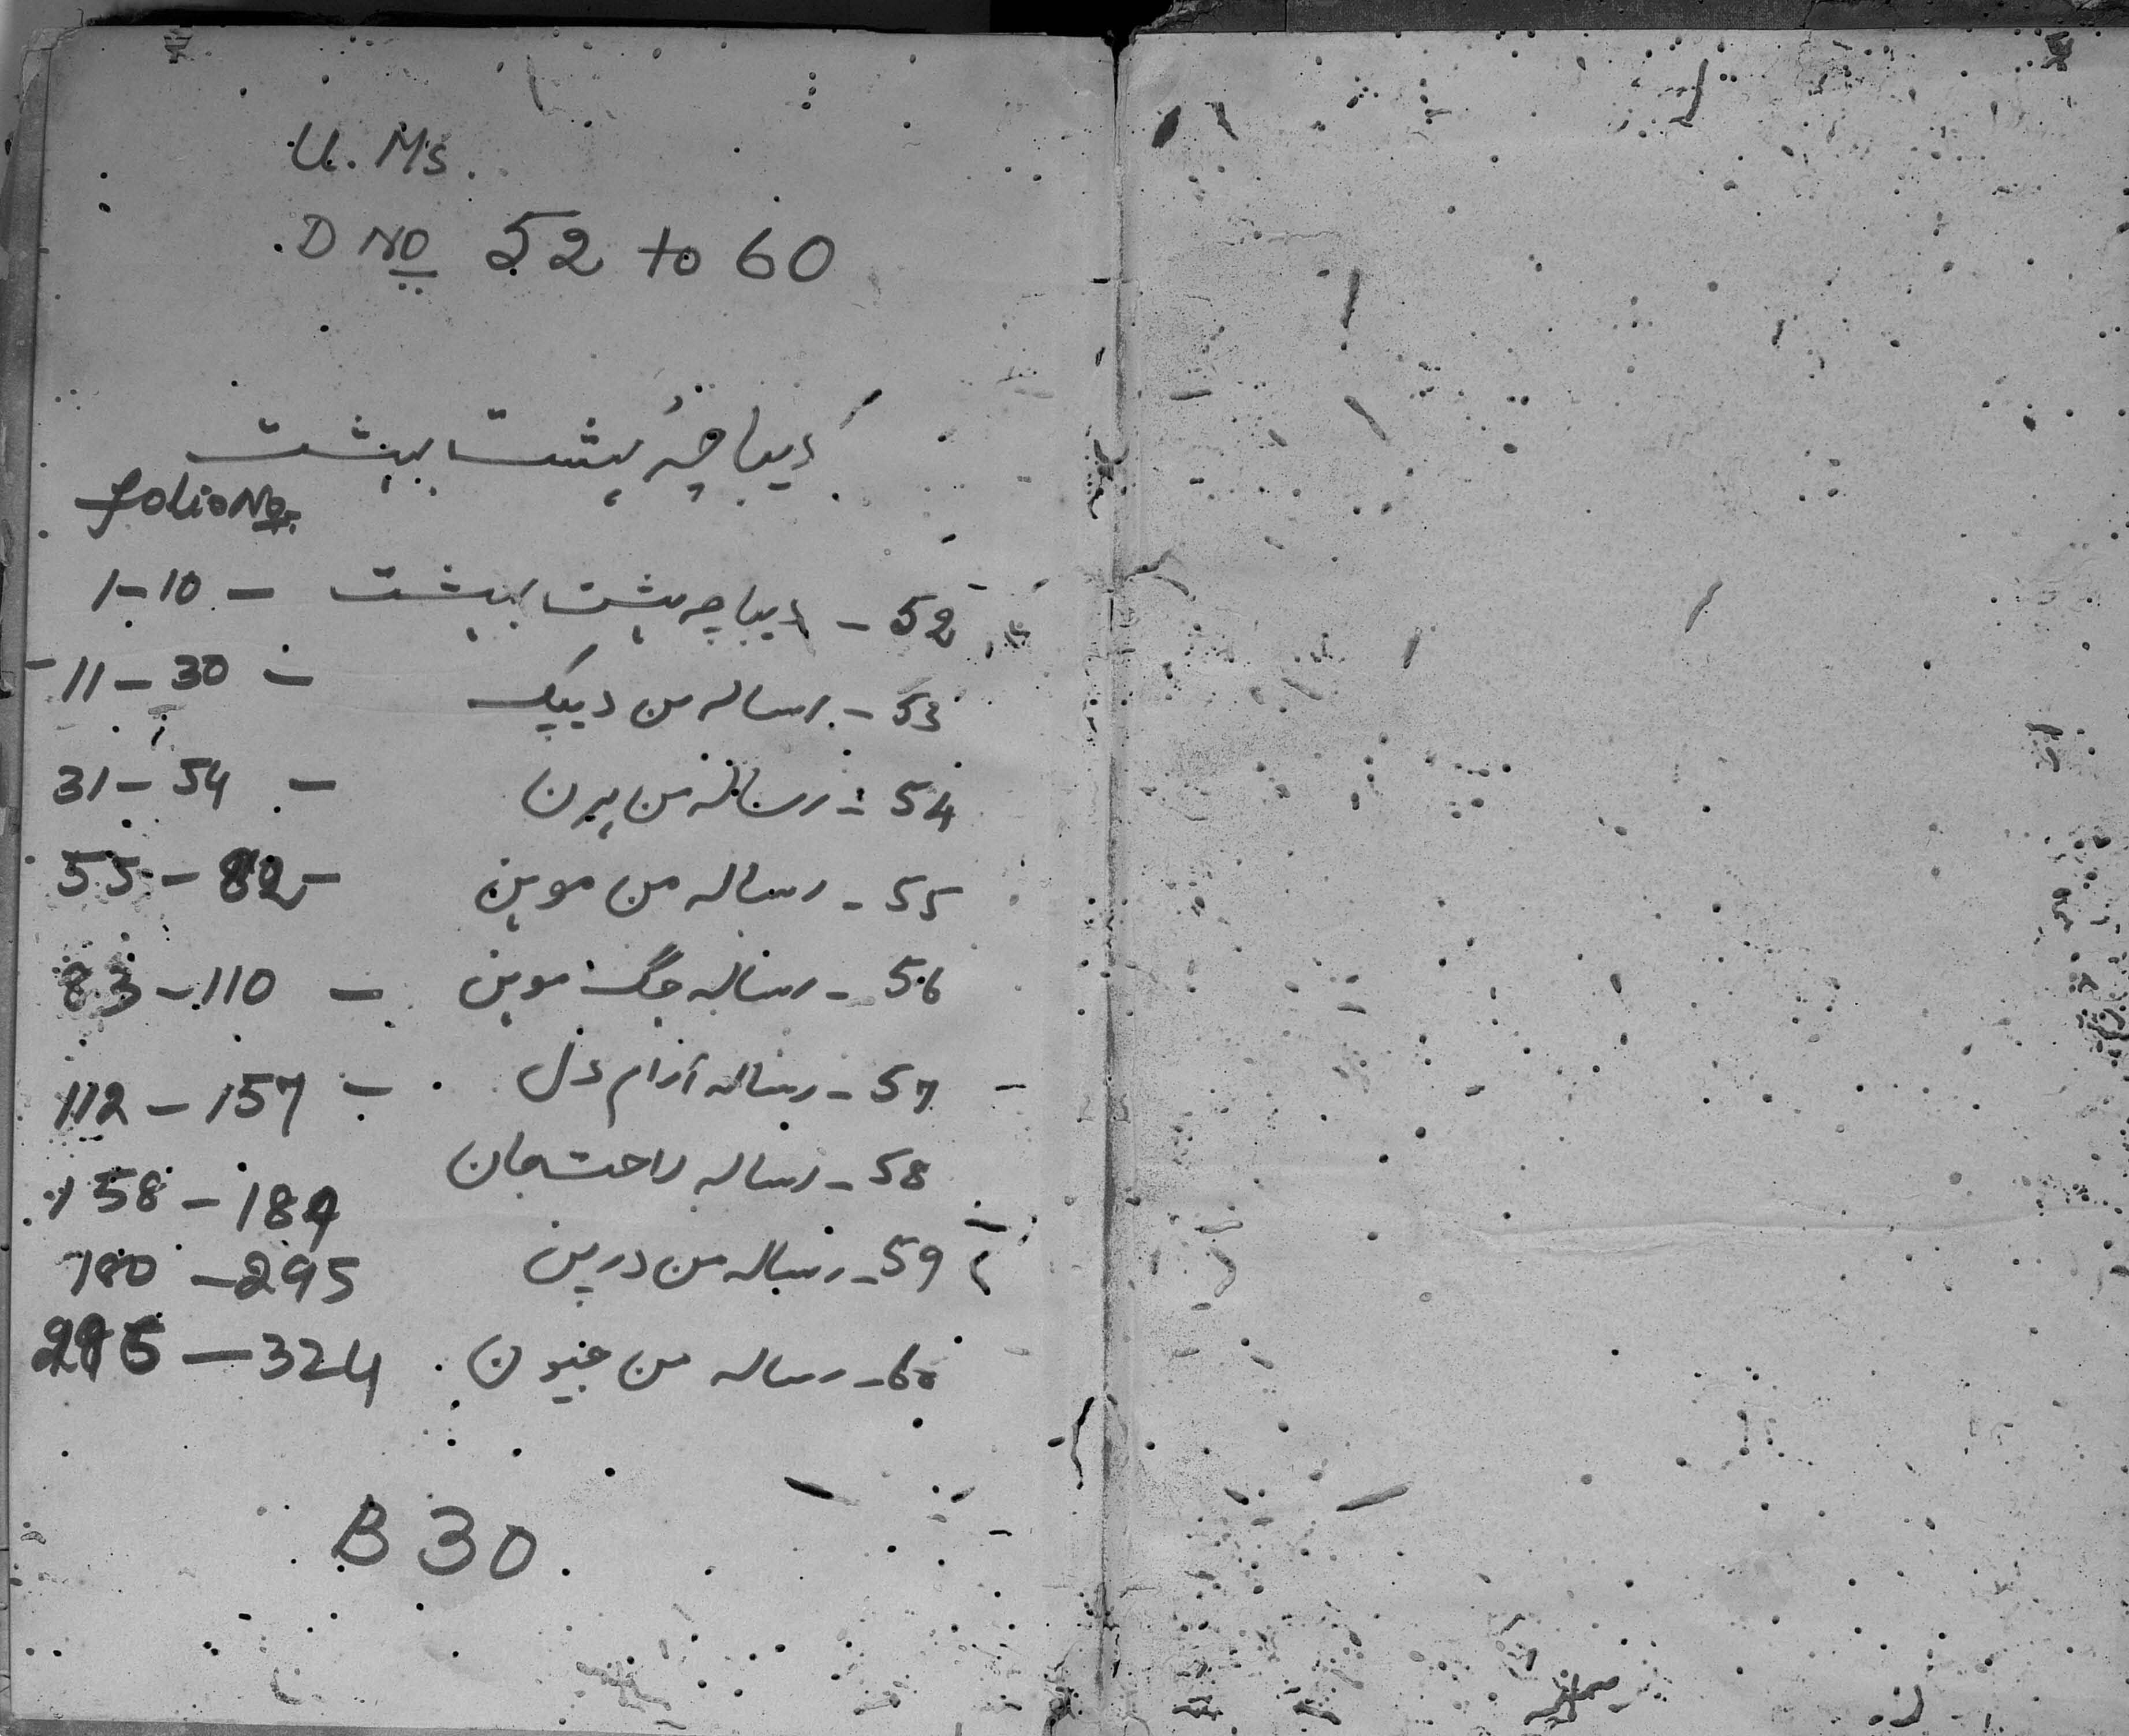 U. Ms.
D No 52 to 60
دیباچۂ ہشت بہشت
folio No.
52 - دیباچہ ہشت بہشت - 1-10
53 - رسالہ من دیپک - 11-30
54 - رسالہ من ہرن - 31-54
55 - رسالہ من موہن - 55-82
56 - رسالہ جگ موہن - 83-110
57 - رسالہ آرام دل - 112-157
58 - رسالہ راحت جان 158-189
59 - رسالہ من درپن 180-295
60 - رسالہ من جیون 295-324
B 30